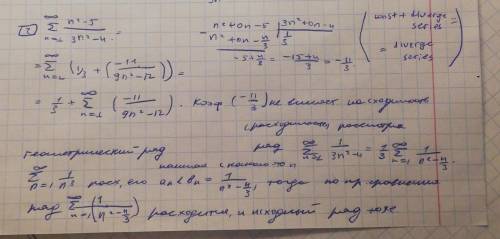 ② ∞∑n=1 (n²-5)/(3n²-4) =
- n²+0n-5 | 3n²+0n-4
n²+0n-4/3 | 1/3
-5+4/3 = (-15+4)/3 = -11/3
(const + diverge series = diverge series)
= ∞∑n=1 (1/3 + (-11/(9n²-12))) =
= 1/3 + ∞∑n=1 (-11/(9n²-12)). Коэф (-11/3) не влияет на сходимость
(расходимость, рассмотрим
ряд ∞∑n=1 1/(3n²-4) = 1/3 ∞∑n=1 1/(n²-4/3).
геометрический ряд
начиная с какого то n
∞∑n=1 1/n³ расх, его an < bn = 1/(n²-4/3), тогда по пр. сравнения
ряд ∞∑n=1 (1/(n²-4/3)) расходится, и исходный ряд тоже.